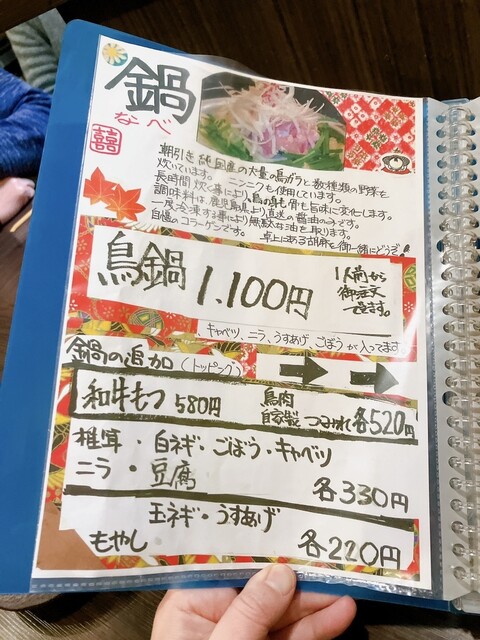 鍋
なべ
囍
朝引き純国産の大量の鳥ガラと数種類の野菜を
炊いています。 ニンニクも使用しています。
長時間炊く事により、鳥の身も骨も旨味に変化します。
調味料は、鹿児島県より直送の醤油のみです。
一度冷凍する事により無駄な油を取ります。
自慢のコラーゲンです。 卓上にある胡麻を御一緒にどうぞ
鳥鍋 1.100円
1人前から
御注文
できます。
キャベツ、ニラ、うすあげ、ごぼうが入ってます
鍋の追加(トッピング)
和牛もつ 580円
鳥肉
自家製つみれ各520円
椎茸・白ネギ・ごぼう・キャベツ
ニラ・豆腐
各330円
玉ネギ・うすあげ
もやし
各220円